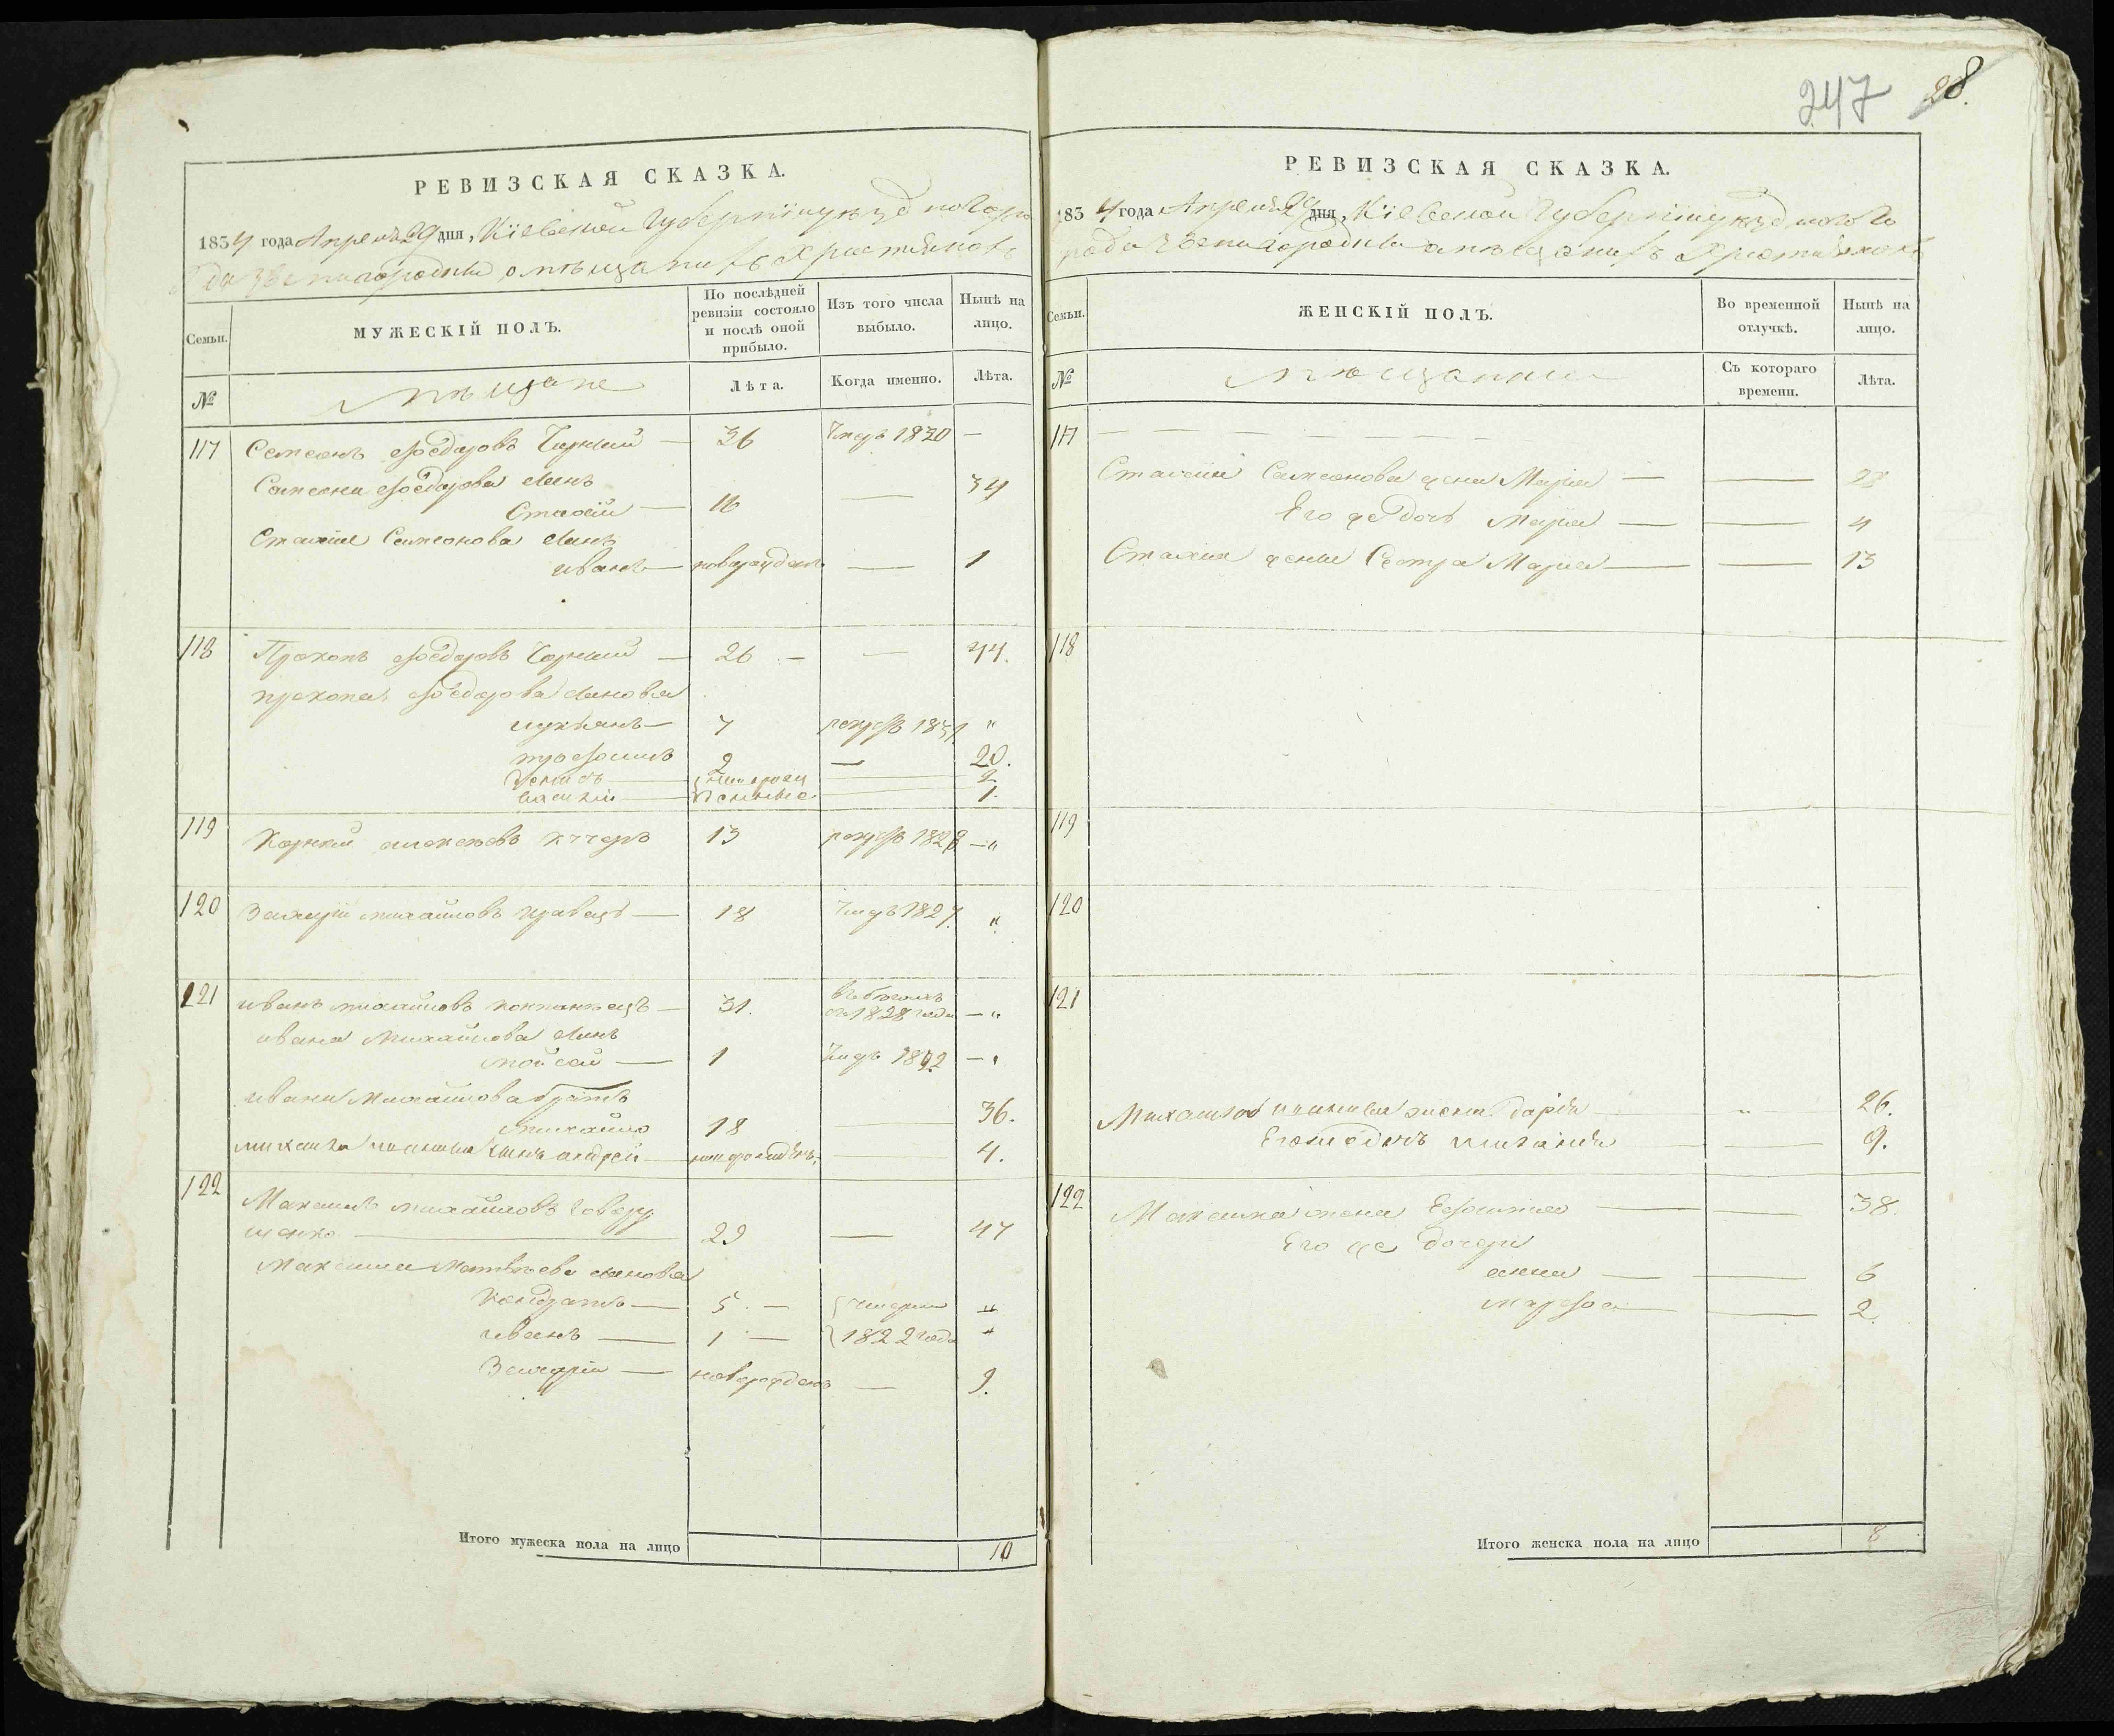 247 28.
РЕВИЗСКАЯ СКАЗКА.
1834 года Апреля 29 дня, Кіевской Губерніи уезд ного горо
да Звенигородки о мѣщанахъ Христіянахъ
Семьи.
МУЖЕСКІЙ ПОЛЪ.
По послѣдней ревизіи состояло и послѣ оной прибыло.
Изъ того числа выбыло.
Нынѣ на лицо.
№
мѣщане
Лѣта.
Когда именно.
Лѣта.
117 Семенъ Ѳедоровъ Чорный — 36 Умеръ 1830 —
Семена Ѳедорова сынъ
Стахій — 16 — 34
Стахія Семенова сынъ
иванъ — новорожденъ — 1
118 Прокопъ Ѳедоровъ Чорный — 26 — — 44.
прокопа Ѳедорова сыновья
лукьянъ — 7 рекрутъ 1831 "
трофимъ 9 — 20.
2
василій 1.
119 Корній 13 рекрутъ 1828 — "
120 Захарій михайловъ кравецъ — 18 Умеръ 1827. "
121 иванъ михайловъ — 31. въ бѣгахъ
съ 1828 года — "
ивана Михайлова сынъ
мойсей — 1 Умеръ 1822 — "
ивана Михайлова братъ
михайло 18 — 36.
михайла сынъ андрей — новорожденъ — 4.
122 Максимъ михайловъ Говору
щенко — 29 — 47
Максима сыновья
Кондратъ — 5 — умерли "
иванъ — 1 — 1822 года "
Захарій — новорожденъ — 9.
Итого мужеска пола на лицо 10
РЕВИЗСКАЯ СКАЗКА.
1834 года Апреля 29 дня, Кіевской Губерніи уездного го
рода Звенигородки о мѣщанахъ Христіянахъ
Семьи.
ЖЕНСКІЙ ПОЛЪ.
Во временной отлучкѣ.
Нынѣ на лицо.
№
мѣщанки
Съ котораго времени.
Лѣта.
117 — — — — — — —
Стахія Семенова жена Марія — — 28
Его же дочь Марія — — 4
Стахія жены Сестра Марія — — 13
118
119
120
121
Михайла жена дарія — " 26.
9.
122 Максима жена Евфимія — — 38.
Его же дочери
анна — — 6
марфа — — 2.
Итого женска пола на лицо 8